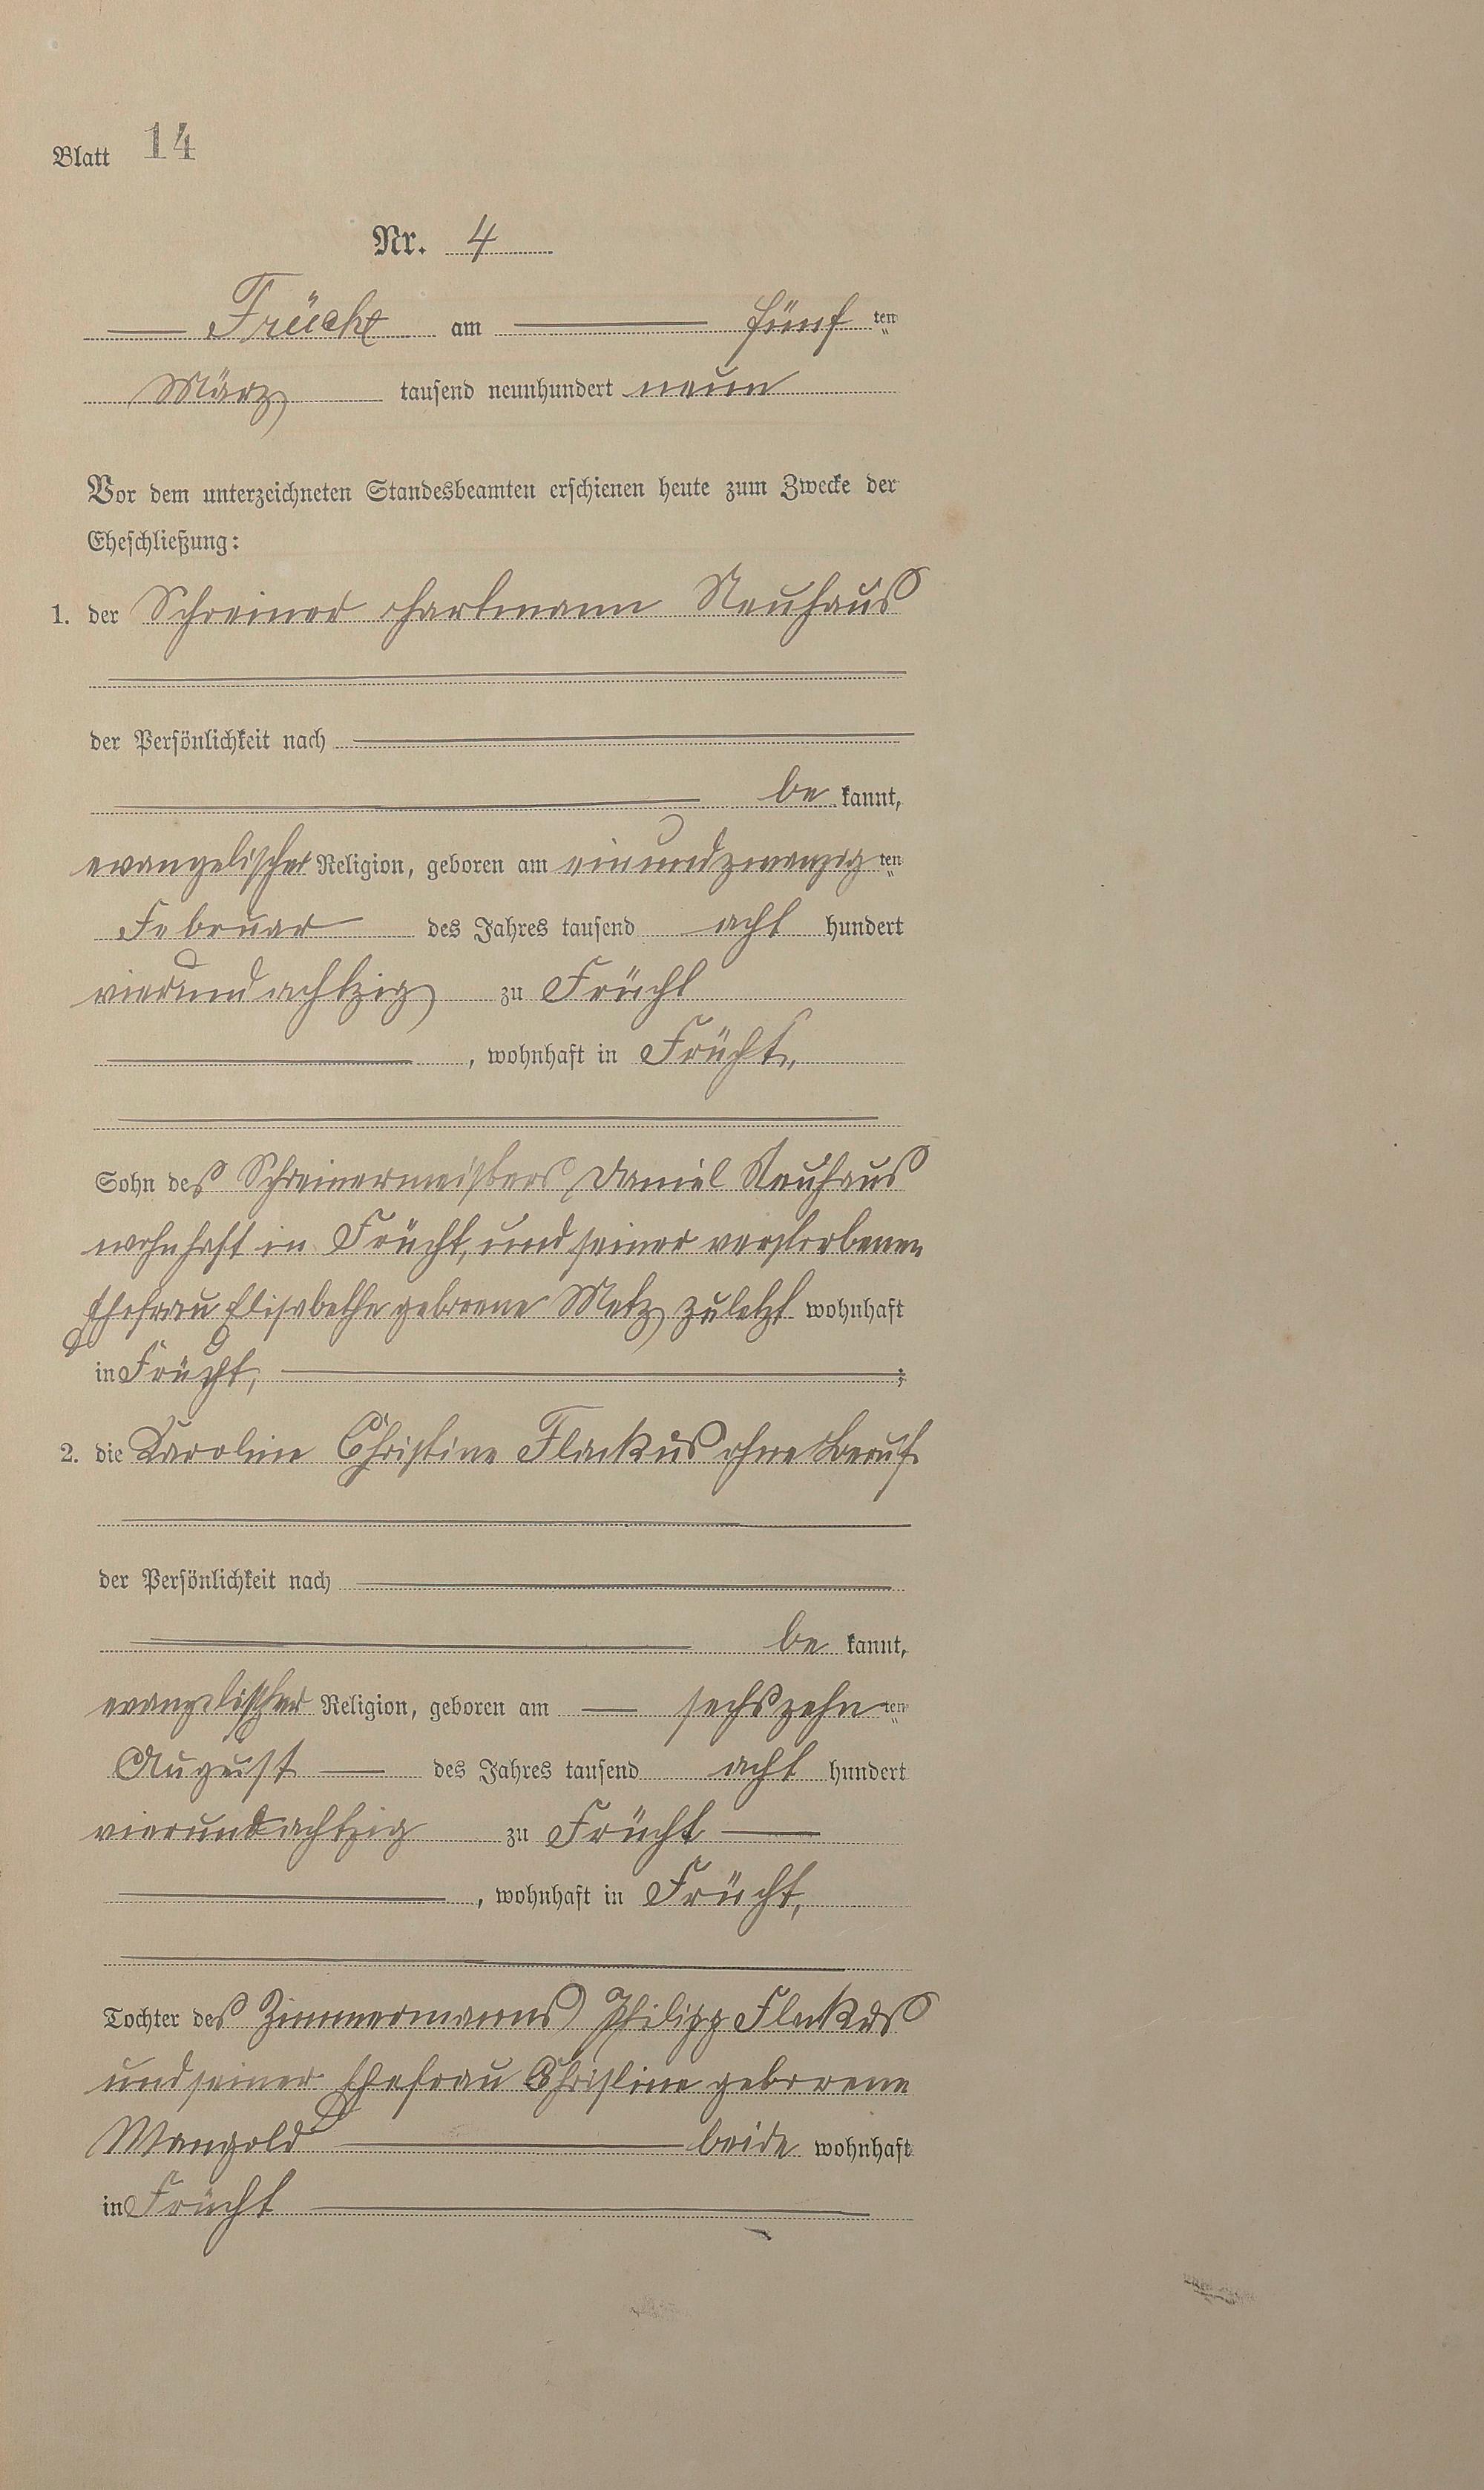 Blatt 14
Nr. 4
Frücht am fünf ten
März tausend neunhundert neun
Vor dem unterzeichneten Standesbeamten erschienen heute zum Zwecke der
Eheschließung:
1. der Schreiner Hartmann Neuhaus
der Persönlichkeit nach
be kannt,
evangelischer Religion, geboren am einundzwanzig ten
Februar des Jahres tausend acht hundert
vierundachtzig zu Frücht
, wohnhaft in Frücht,
Sohn des Schreinermeisters Daniel Neuhaus
wohnhaft in Frücht, und seiner verstorbenen
Ehefrau Elisabethe geborene Metz zuletzt wohnhaft
in Frücht, ;
2. die Karoline Christine Flackus ohne Beruf
der Persönlichkeit nach
be kannt,
evangelischer Religion, geboren am sechszehn ten
August des Jahres tausend acht hundert
vierundachtzig zu Frücht
, wohnhaft in Frücht,
Tochter des Zimmermanns Philipp Flakus
und seiner Ehefrau Christine geborene
Mangold beide wohnhaft
in Frücht